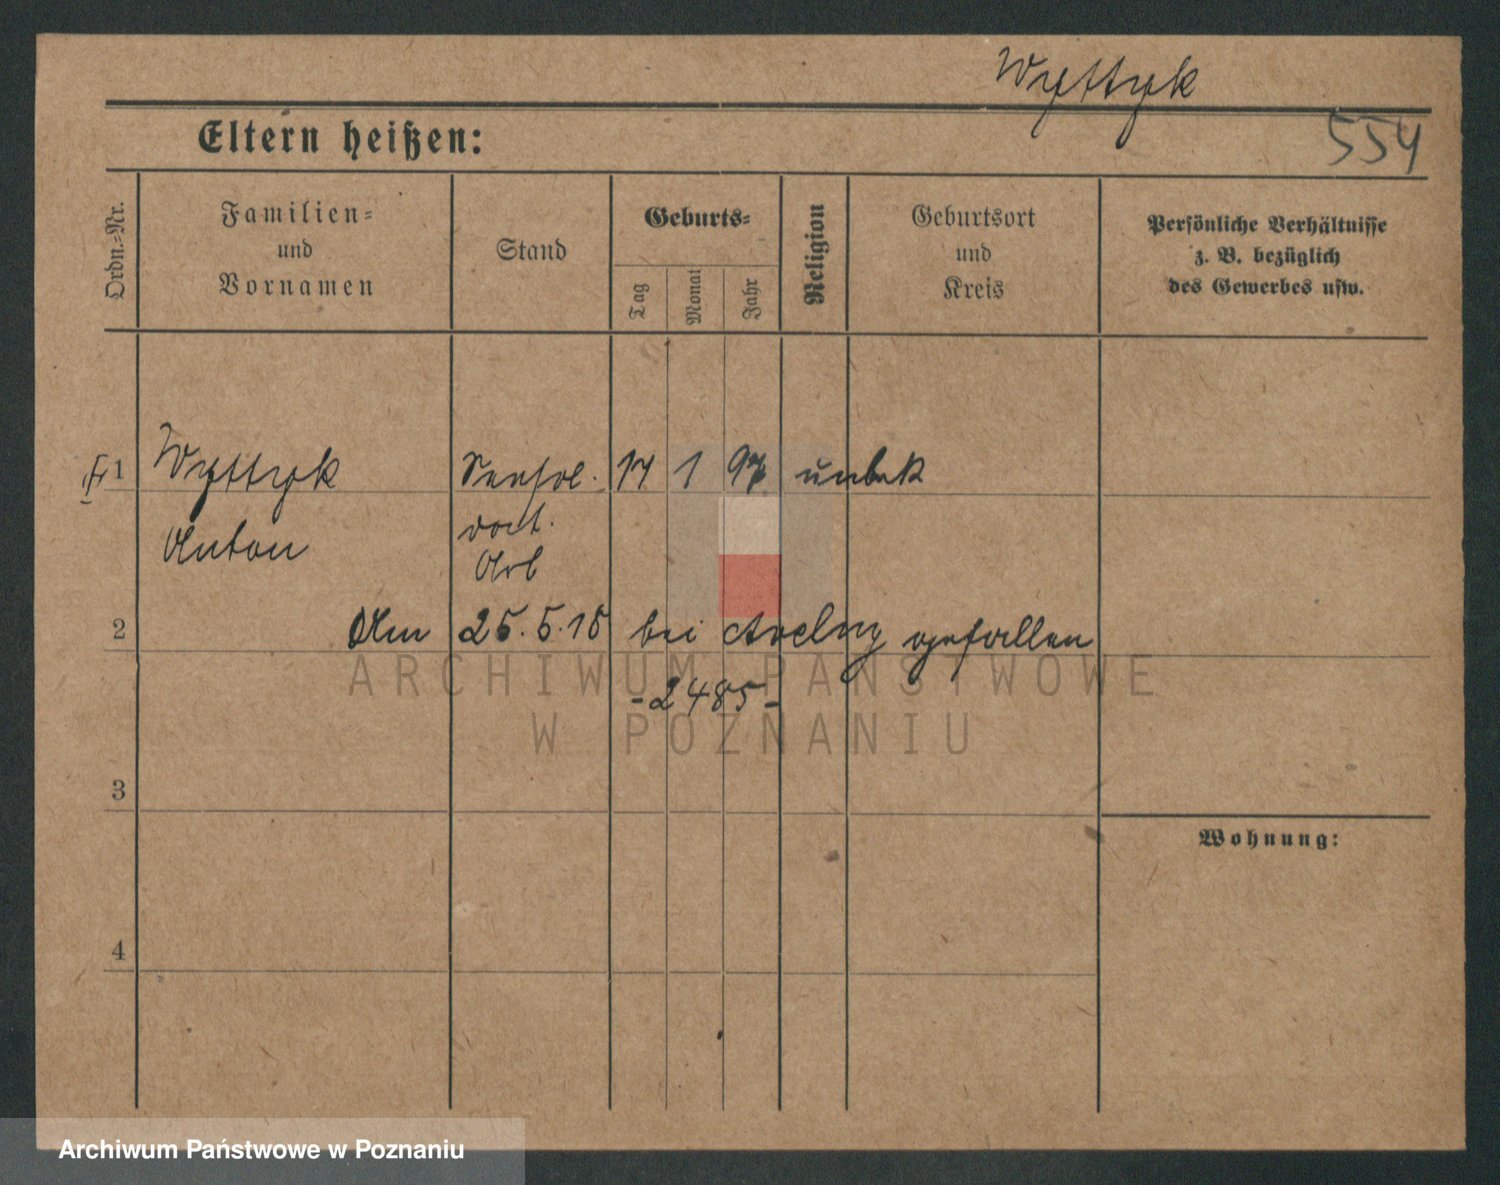 Wyttyk
554
Eltern heißen:
Ordn.-Nr.
Familien-
und
Vornamen
Stand
Geburts-
Tag
Monat
Jahr
Religion
Geburtsort
und
Kreis
Persönliche Verhältnisse
z. B. bezüglich
des Gewerbes usw.
1 Wyttyk 17 1 97 unbek
Anton
Arb
2 Am 25.5.15 bei gefallen
-2485-
3
Wohnung:
4
ARCHIWUM PAŃSTWOWE
W POZNANIU
Archiwum Państwowe w Poznaniu